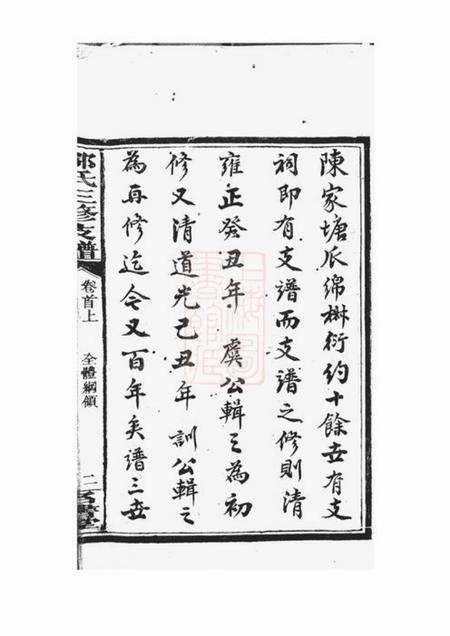 陳家塘瓜綿椒衍約十餘世有支
祠即有支譜而支譜之修則清
雍正癸丑年 虞公輯之為初
修又清道光己丑年 訓公輯之
為再修迄今又百年矣譜三世
氏三修支譜
卷首上
全體綱領
二